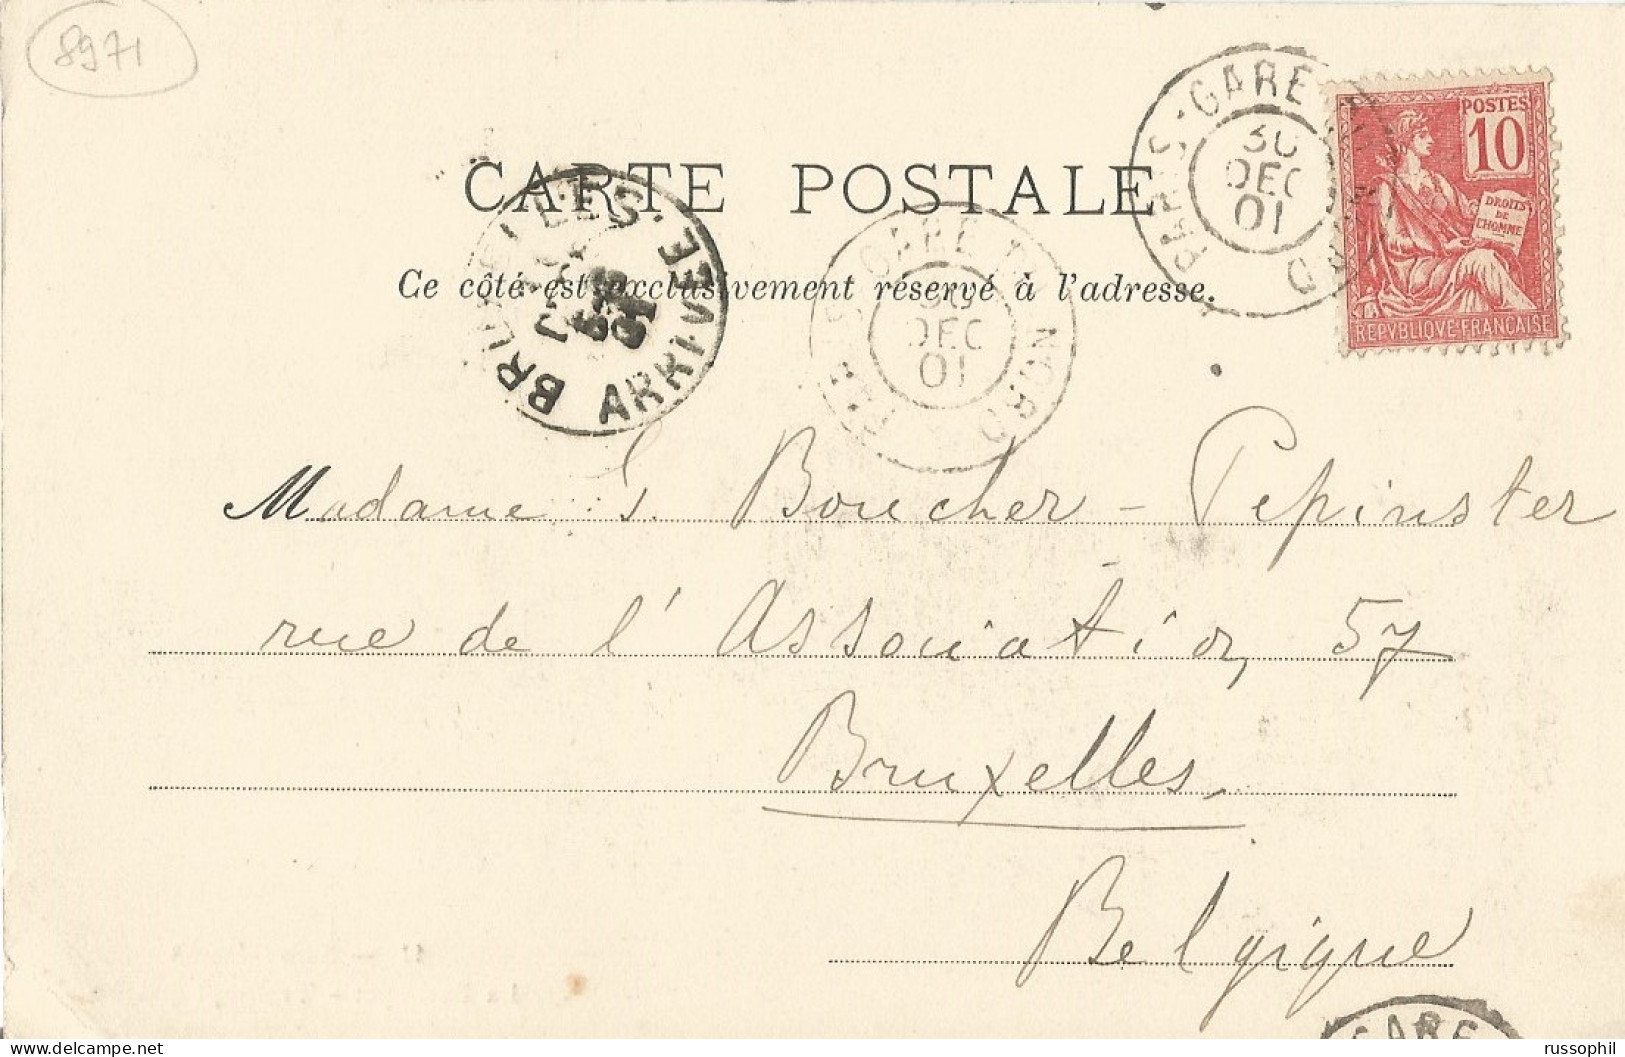 8971
PARIS · GARE DU NORD
30
DEC
01
POSTES
10
DROITS
DE
L'HOMME
REPVBLIQVE FRANÇAISE
CARTE POSTALE
Ce côté est exclusivement réservé à l'adresse.
BRUXELLES · ARRIVÉE
PARIS GARE DU NORD
30
DEC
01
Madame G. Boucher - Pepinster
rue de l'Association, 57
Bruxelles.
Belgique
GARE
delcampe.net
russophil